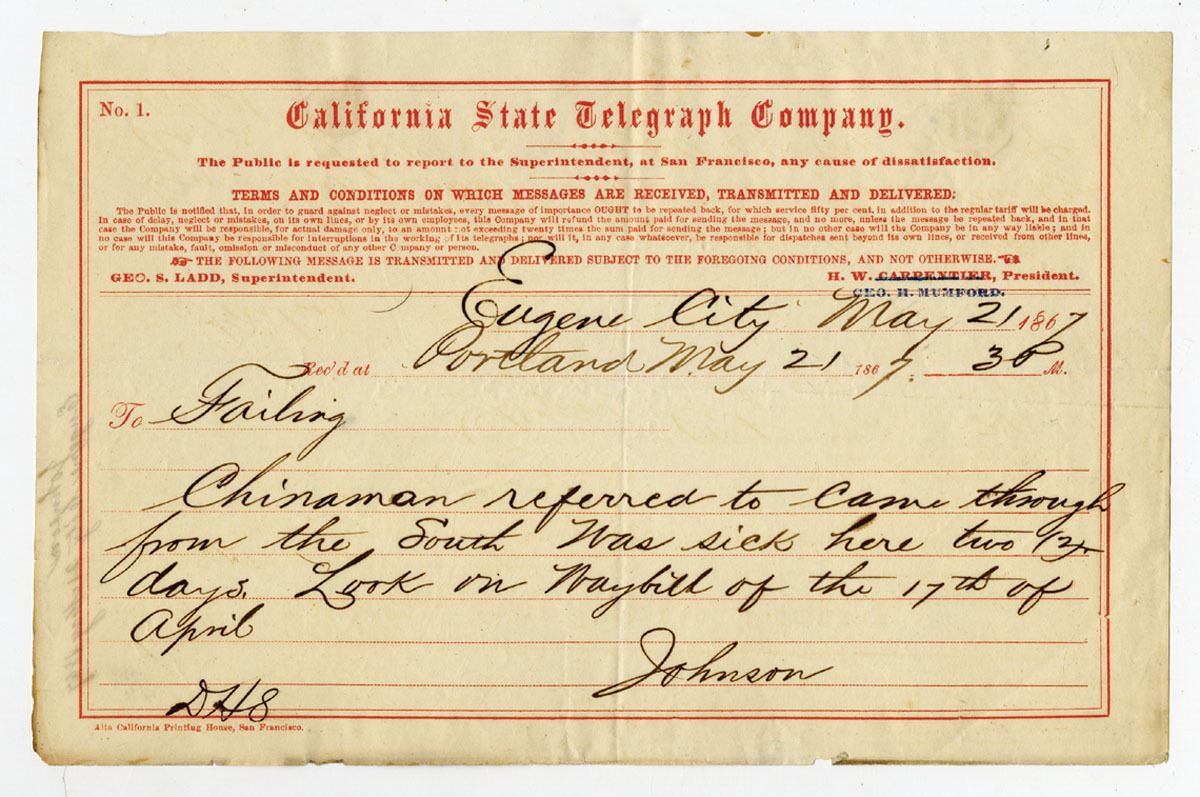 No. 1.
California State Telegraph Company.
The Public is requested to report to the Superintendent, at San Francisco, any cause of dissatisfaction.
TERMS AND CONDITIONS ON WHICH MESSAGES ARE RECEIVED, TRANSMITTED AND DELIVERED:
The Public is notified that, in order to guard against neglect or mistakes, every message of importance OUGHT to be repeated back, for which service fifty per cent. in addition to the regular tariff will be charged.
In case of delay, neglect or mistakes, on its own lines, or by its own employees, this Company will refund the amount paid for sending the message, and no more, unless the message be repeated back, and in that
case the Company will be responsible, for actual damage only, to an amount not exceeding twenty times the sum paid for sending the message; but in no other case will the Company be in any way liable; and in
no case will this Company be responsible for interruptions in the working of its telegraphs; nor will it, in any case whatsoever, be responsible for dispatches sent beyond its own lines, or received from other lines,
or for any mistake, fault, omission or misconduct of any other Company or person.
THE FOLLOWING MESSAGE IS TRANSMITTED AND DELIVERED SUBJECT TO THE FOREGOING CONDITIONS, AND NOT OTHERWISE.
GEO. S. LADD, Superintendent. H. W. CARPENTIER, President.
GEO. H. MUMFORD.
Eugene City May 21 1867
Rec'd at Portland May 21 1867. 30 M.
To Failing
Chinaman referred to came through
from the South Was sick here two (2)
days. Look on Waybill of the 17th of
April
Johnson
DHS
Alta California Printing House, San Francisco.